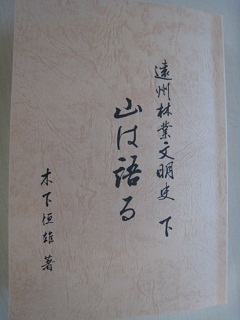 遠州林業文明史 下
山は語る
木下恒雄 著